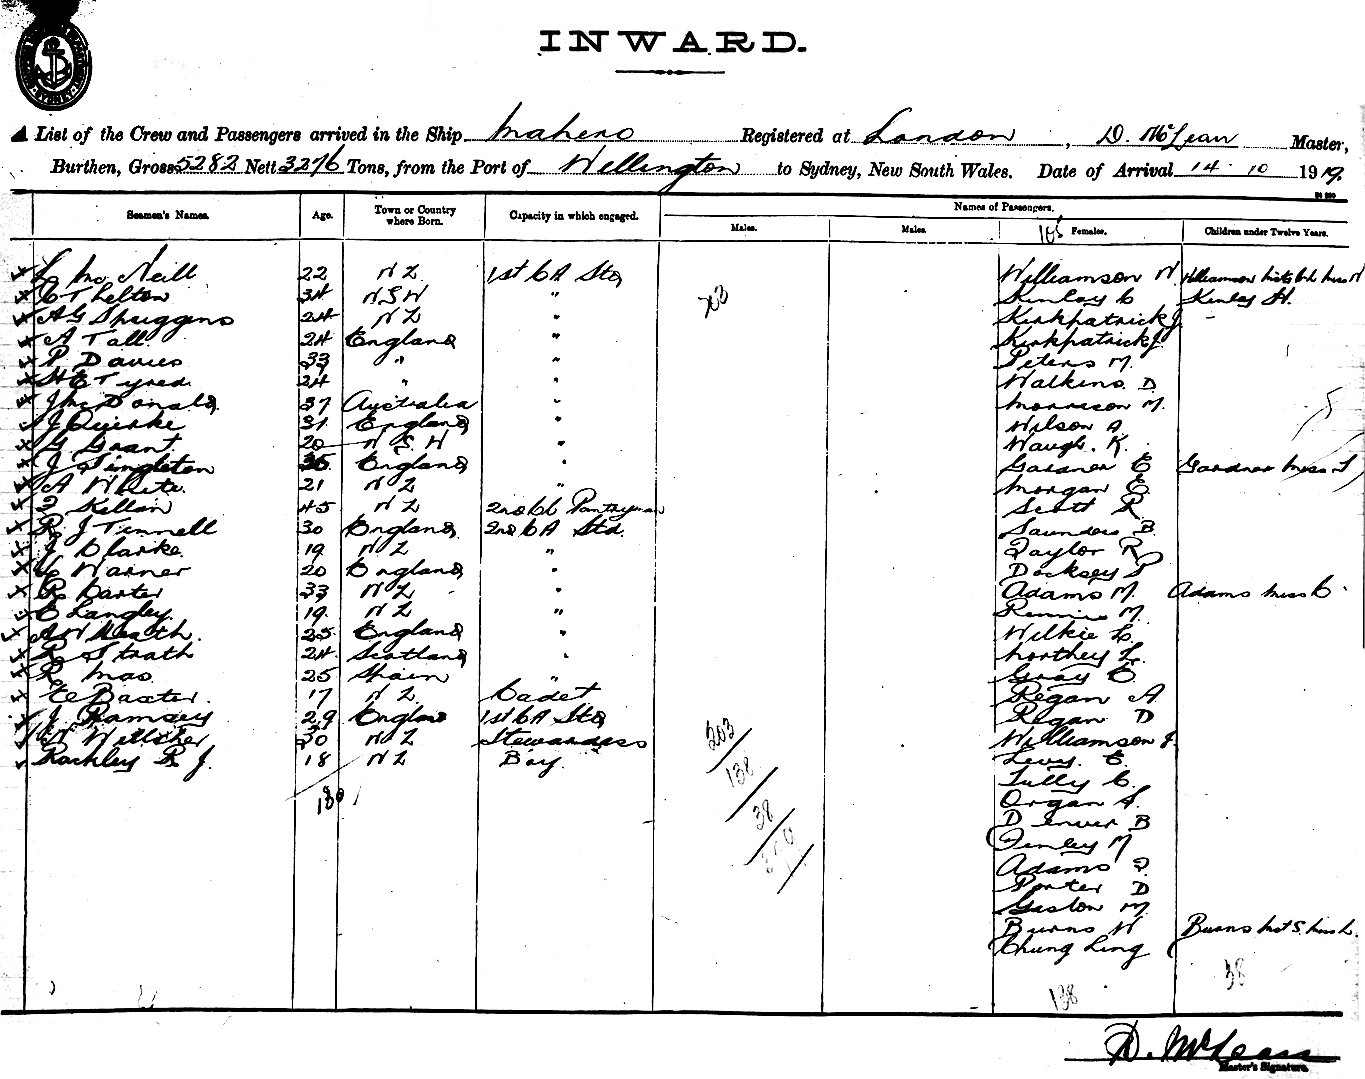 INWARD.
List of the Crew and Passengers arrived in the Ship Maheno Registered at London, D. McLean Master,
Burthen, Gross 5282 Nett 3276 Tons, from the Port of Wellington to Sydney, New South Wales. Date of Arrival 14 10 1919.
Names of Passengers.
Seamen's Names. Age. Town or Country where Born. Capacity in which engaged. Males. Males. 105 Females. Children under Twelve Years.
L McNeill 22 NZ 1st Cl A Std Williamson N
C T Lelton 34 NSW " 203 Kinley C Kinley H.
A G Spriggins 24 NZ " Kirkpatrick J
A Tall 24 England " Kirkpatrick J
P Davies 33 " " Peters M.
H E Tyred 24 " " Walkins D
J McDonald 37 Australia " Morrison M.
J Quirke 31 England " Wilson A
G Grant 20 N S W " Waugh. K.
J Singleton 36 England " Gardner E Gardner Miss
A White 21 NZ " Morgan E
Kellin 45 NZ 2nd Cl Pantryman Scott R
R J Tinnell 30 England 2nd Cl A Std. Saunders B
J Clarke 19 NZ " Taylor R
C Warner 20 England " Docksey
R Carter 33 NZ " Adams M. Adams Miss C
C Langley 19 NZ " Rennie M.
A W Heath. 25 England " Wilkie L.
R Strath 24 Scotland " Northey L.
R Mao 25 Spain " Gray E
E Baxter. 17 NZ Cadet Regan A
J. Ramsey 29 England 1st Cl A Std Regan D
Willsher 30 NZ Stewardess 203 Williamson J.
Rackley R J. 18 NZ Boy. Levy. E.
138 Tully C.
130 Organ A.
38 Denver B
Finley M
Adams
Porter D
Gaston M
Burns W Burns
Chung Ling
38
138
D. McLean
Master's Signature.